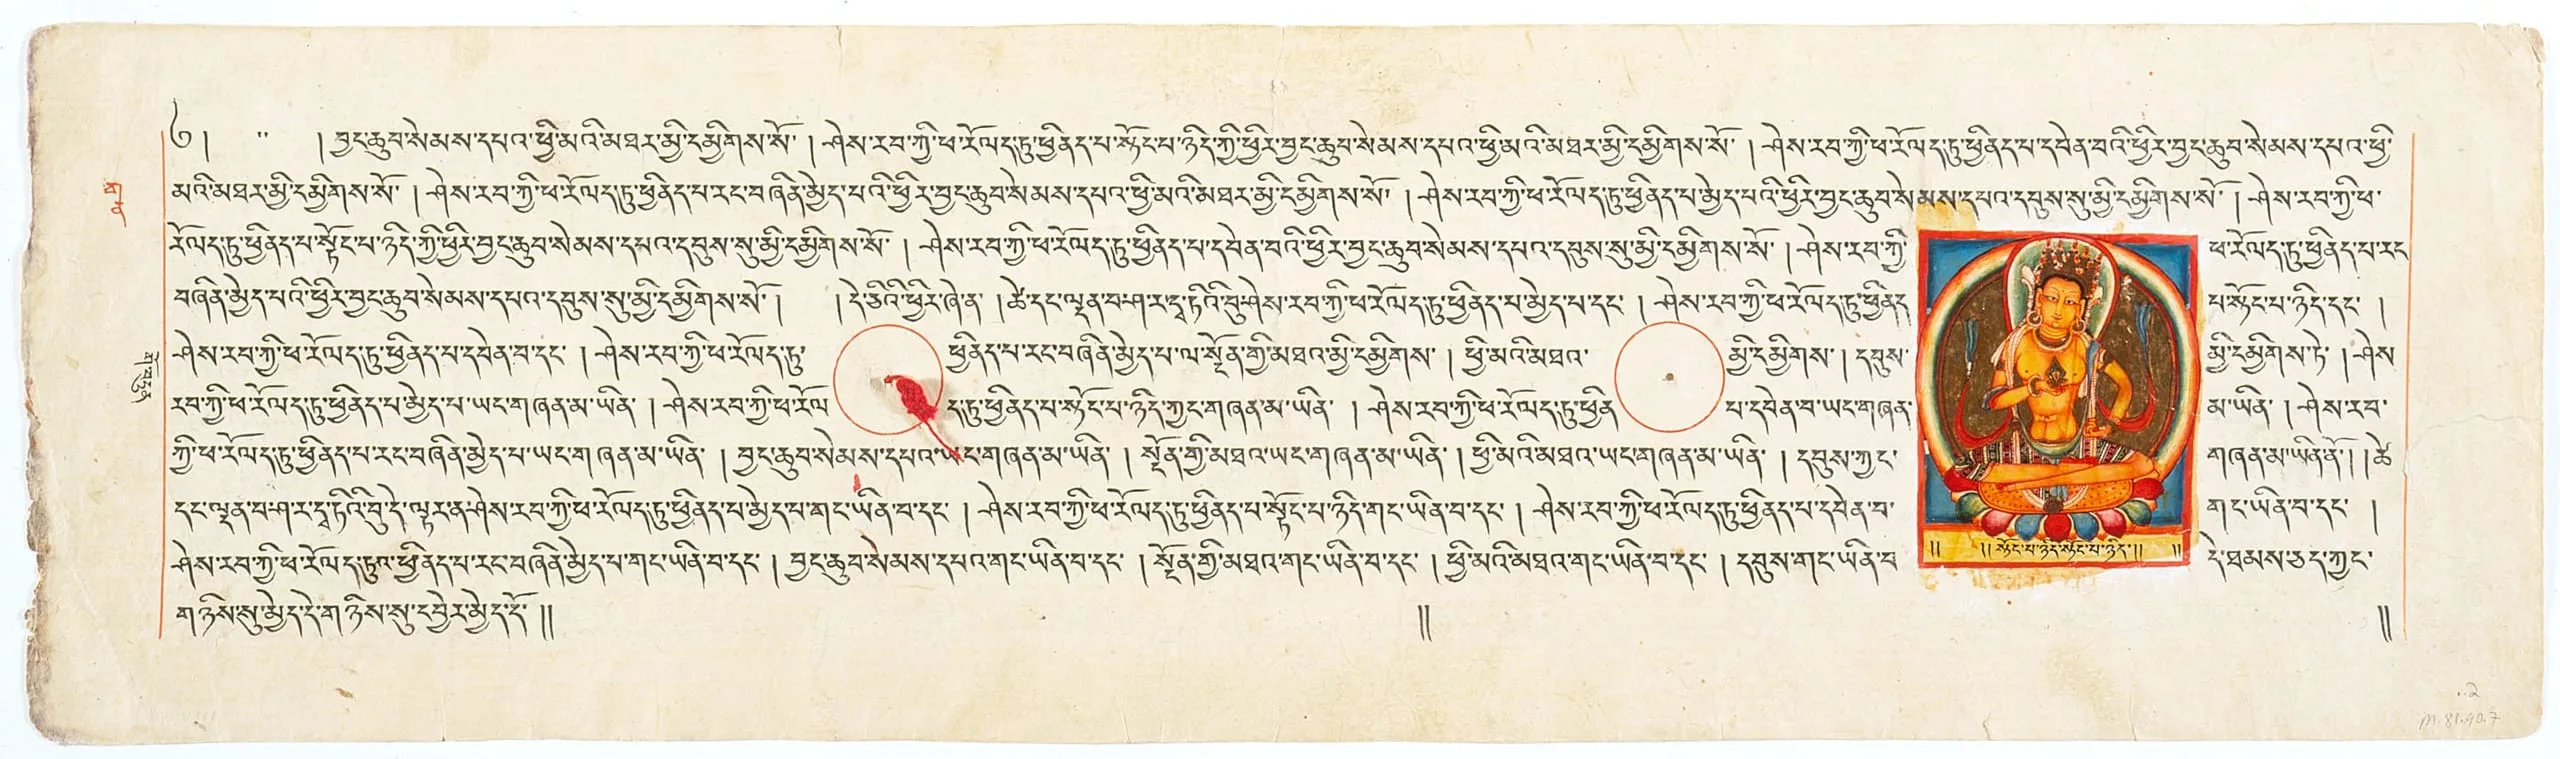 ༄། །བྱང་ཆུབ་སེམས་དཔའ་ཕྱི་མའི་མཐར་མྱི་དམྱིགས་སོ་ །ཤེས་རབ་ཀྱི་ཕ་རོལ་དུ་ཕྱིནད་པ་སྟོང་པ་ཉིད་ཀྱི་ཕྱིར་བྱང་ཆུབ་སེམས་དཔའ་ཕྱི་མའི་མཐར་མྱི་དམྱིགས་སོ་ །ཤེས་རབ་ཀྱི་ཕ་རོལ་དུ་ཕྱིནད་པ་དབེན་བའི་ཕྱིར་བྱང་ཆུབ་སེམས་དཔའ་ཕྱི་
མའི་མཐར་མྱི་དམྱིགས་སོ་ །ཤེས་རབ་ཀྱི་ཕ་རོལ་དུ་ཕྱིནད་པ་རང་བཞིན་མྱེད་པའི་ཕྱིར་བྱང་ཆུབ་སེམས་དཔའ་ཕྱི་མའི་མཐར་མྱི་དམྱིགས་སོ་ །ཤེས་རབ་ཀྱི་ཕ་རོལ་དུ་ཕྱིནད་པ་མྱེད་པའི་ཕྱིར་བྱང་ཆུབ་སེམས་དཔའ་དབུས་སུ་མྱི་དམྱིགས་སོ་ །ཤེས་རབ་ཀྱི་ཕ་
རོལ་དུ་ཕྱིནད་པ་སྟོང་པ་ཉིད་ཀྱི་ཕྱིར་བྱང་ཆུབ་སེམས་དཔའ་དབུས་སུ་མྱི་དམྱིགས་སོ་ །ཤེས་རབ་ཀྱི་ཕ་རོལ་དུ་ཕྱིནད་པ་དབེན་བའི་ཕྱིར་བྱང་ཆུབ་སེམས་དཔའ་དབུས་སུ་མྱི་དམྱིགས་སོ་ །ཤེས་རབ་ཀྱི་ ཕ་རོལ་དུ་ཕྱིནད་པ་རང
བཞིན་མྱེད་པའི་ཕྱིར་བྱང་ཆུབ་སེམས་དཔའ་དབུས་སུ་མྱི་དམྱིགས་སོ་ ། །དེ་ཅིའི་ཕྱིར་ཞེ་ན་ །ཚེ་དང་ལྡན་བ་ཤ་ར་དྭ་ཏིའི་བུ་ཤེས་རབ་ཀྱི་ཕ་རོལ་དུ་ཕྱིནད་པ་མྱེད་པ་དང་ །ཤེས་རབ་ཀྱི་ཕ་རོལ་དུ་ཕྱིནད པ་སྟོང་པ་ཉིད་དང་ །
ཤེས་རབ་ཀྱི་ཕ་རོལ་དུ་ཕྱིནད་པ་དབེན་བ་དང་ །ཤེས་རབ་ཀྱི་ཕ་རོལ་དུ་ ཕྱིནད་པ་རང་བཞིན་མྱེད་པ་ལ་སྔོན་གྱི་མཐའ་མྱི་དམྱིགས་ །ཕྱི་མའི་མཐའ་ མྱི་དམྱིགས་ །དབུས་ མྱི་དམྱིགས་ཏེ་ །ཤེས
རབ་ཀྱི་ཕ་རོལ་དུ་ཕྱིནད་པ་མྱེད་པ་ཡང་གཞན་མ་ཡིན་ །ཤེས་རབ་ཀྱི་ཕ་རོལ ་དུ་ཕྱིནད་པ་སྟོང་པ་ཉིད་ཀྱང་གཞན་མ་ཡིན་ །ཤེས་རབ་ཀྱི་ཕ་རོལ་དུ་ཕྱིན པ་དབེན་བ་ཡང་གཞན་ མ་ཡིན་ །ཤེས་རབ་
ཀྱི་ཕ་རོལ་དུ་ཕྱིནད་པ་རང་བཞིན་མྱེད་པ་ཡང་གཞན་མ་ཡིན་ །བྱང་ཆུབ་སེམས་དཔའ་ཡང་གཞན་མ་ཡིན་ །སྔོན་གྱི་མཐའ་ཡང་གཞན་མ་ཡིན་ །ཕྱི་མའི་མཐའ་ཡང་གཞན་མ་ཡིན་ །དབུས་ཀྱང་ གཞན་མ་ཡིན་ནོ། །ཚེ
དང་ལྡན་བ་ཤ་ར་དྭ་ཏིའི་བུ་དེ་ལྟར་ན་ཤེས་རབ་ཀྱི་ཕ་རོལ་དུ་ཕྱིནད་པ་མྱེད་པ་གང་ཡིན་བ་དང་ །ཤེས་རབ་ཀྱི་ཕ་རོལ་དུ་ཕྱིནད་པ་སྟོང་པ་ཉིད་གང་ཡིན་བ་དང་ །ཤེས་རབ་ཀྱི་ཕ་རོལ་དུ་ཕྱིནད་པ་དབེན་བ་ གང་ཡིན་བ་དང་ །
ཤེས་རབ་ཀྱི་ཕ་རོལ་དུ་ཕྱིནད་པ་རང་བཞིན་མྱེད་པ་གང་ཡིན་བ་དང་ །བྱང་ཆུབ་སེམས་དཔའ་གང་ཡིན་བ་དང་ །སྔོན་གྱི་མཐའ་གང་ཡིན་བ་དང་ །ཕྱི་མའི་མཐའ་གང་ཡིན་བ་དང་ །དབུས་གང་ཡིན་བ དེ་ཐམས་ཅད་ཀྱང་
གཉིས་སུ་མྱེད་དེ་གཉིས་སུ་དབྱེར་མྱེད་དོ་ །། །། །།
།། །།སྟོང་པ་ཉིད་སྟོང་པ་ཉིད་།། །།
M.81.90.7